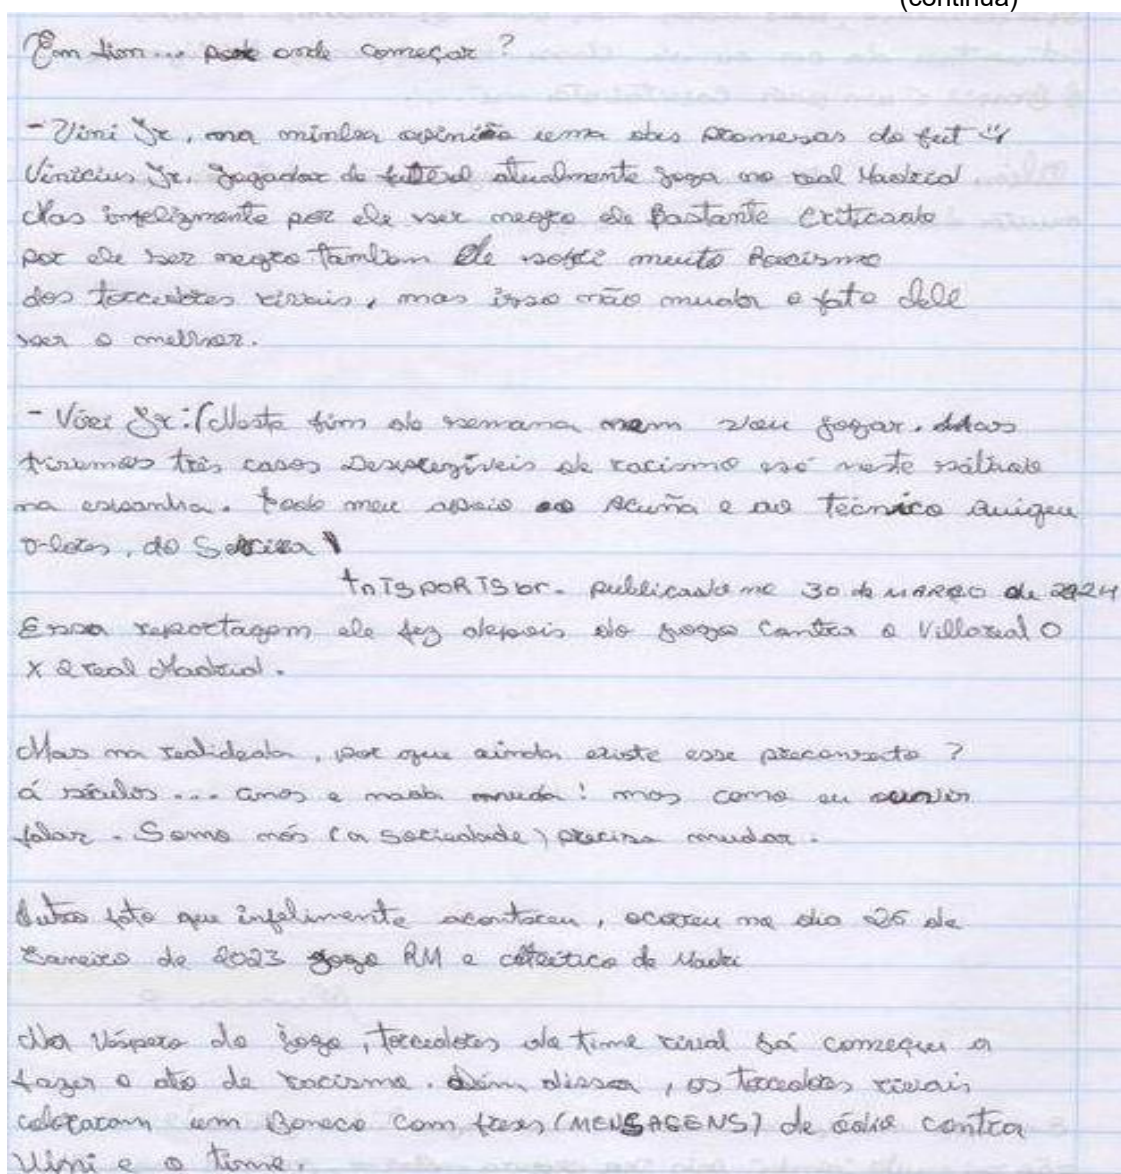 (continua)
Em tion... por onde começar?
- Vini Jr, na minha opinião uma das promesas do fut
Vinicius Jr. Jogador de futebol atualmente joga no real Madrid
Mas infelizmente por ele ser negro ele Bastante Criticado
por ele ser negro tambem Ele sofri muito Racismo
dos torcedores rivais, mas isso não muda o fato dele
ser o melhor.
- Vini Jr: (Neste fim de semana nem vou jogar. Mas
tivemos três casos Desprezíveis de racismo só neste sábado
na espanha. todo meu apoio ao Acuña e ao técnico Quique
Flores, do Sevilla
tntSPORTSbr. publicado no 30 de MARÇO de 2024
Essa reportagem ele fez depois do jogo contra o Villareal 0
X 2 real Madrid.
Mas na realidade, por que ainda existe esse preconceito?
á séculos... anos e nada muda! mas como eu ouvir
falar. Somo nós (a sociedade) precisa mudar.
Outro fato que infelimente aconteceu, ocorreu no dia 26 de
Janeiro de 2023 jogo RM e atletico de Madri
Na Véspera do jogo, torcedores do time rival já começou a
fazer o ato de racismo. Além dissa, os torcedores rivais
colocaram um Boneco com frses (MENSAGENS) de ódio contra
Vini e o time.